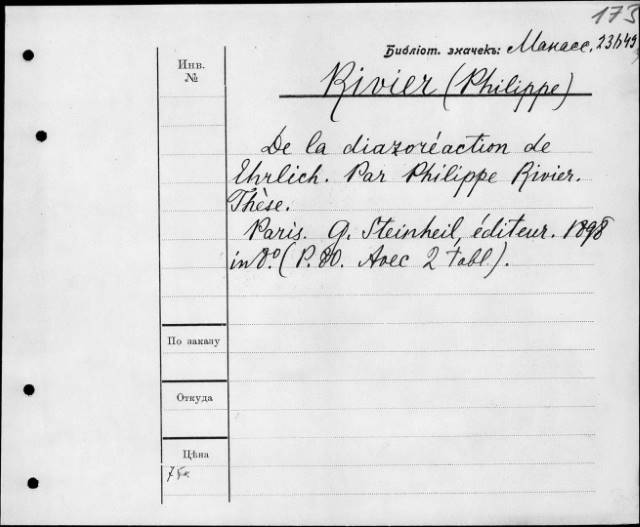 173
Библіот. значекъ: Манасс. 23h49
Инв.
№
Rivier (Philippe)
De la diazoréaction de
Ehrlich. Par Philippe Rivier.
Thèse.
Paris. G. Steinheil, éditeur. 1898
in 8.º (P. 80. Avec 2 tabl.).
По заказу
Откуда
Цѣна